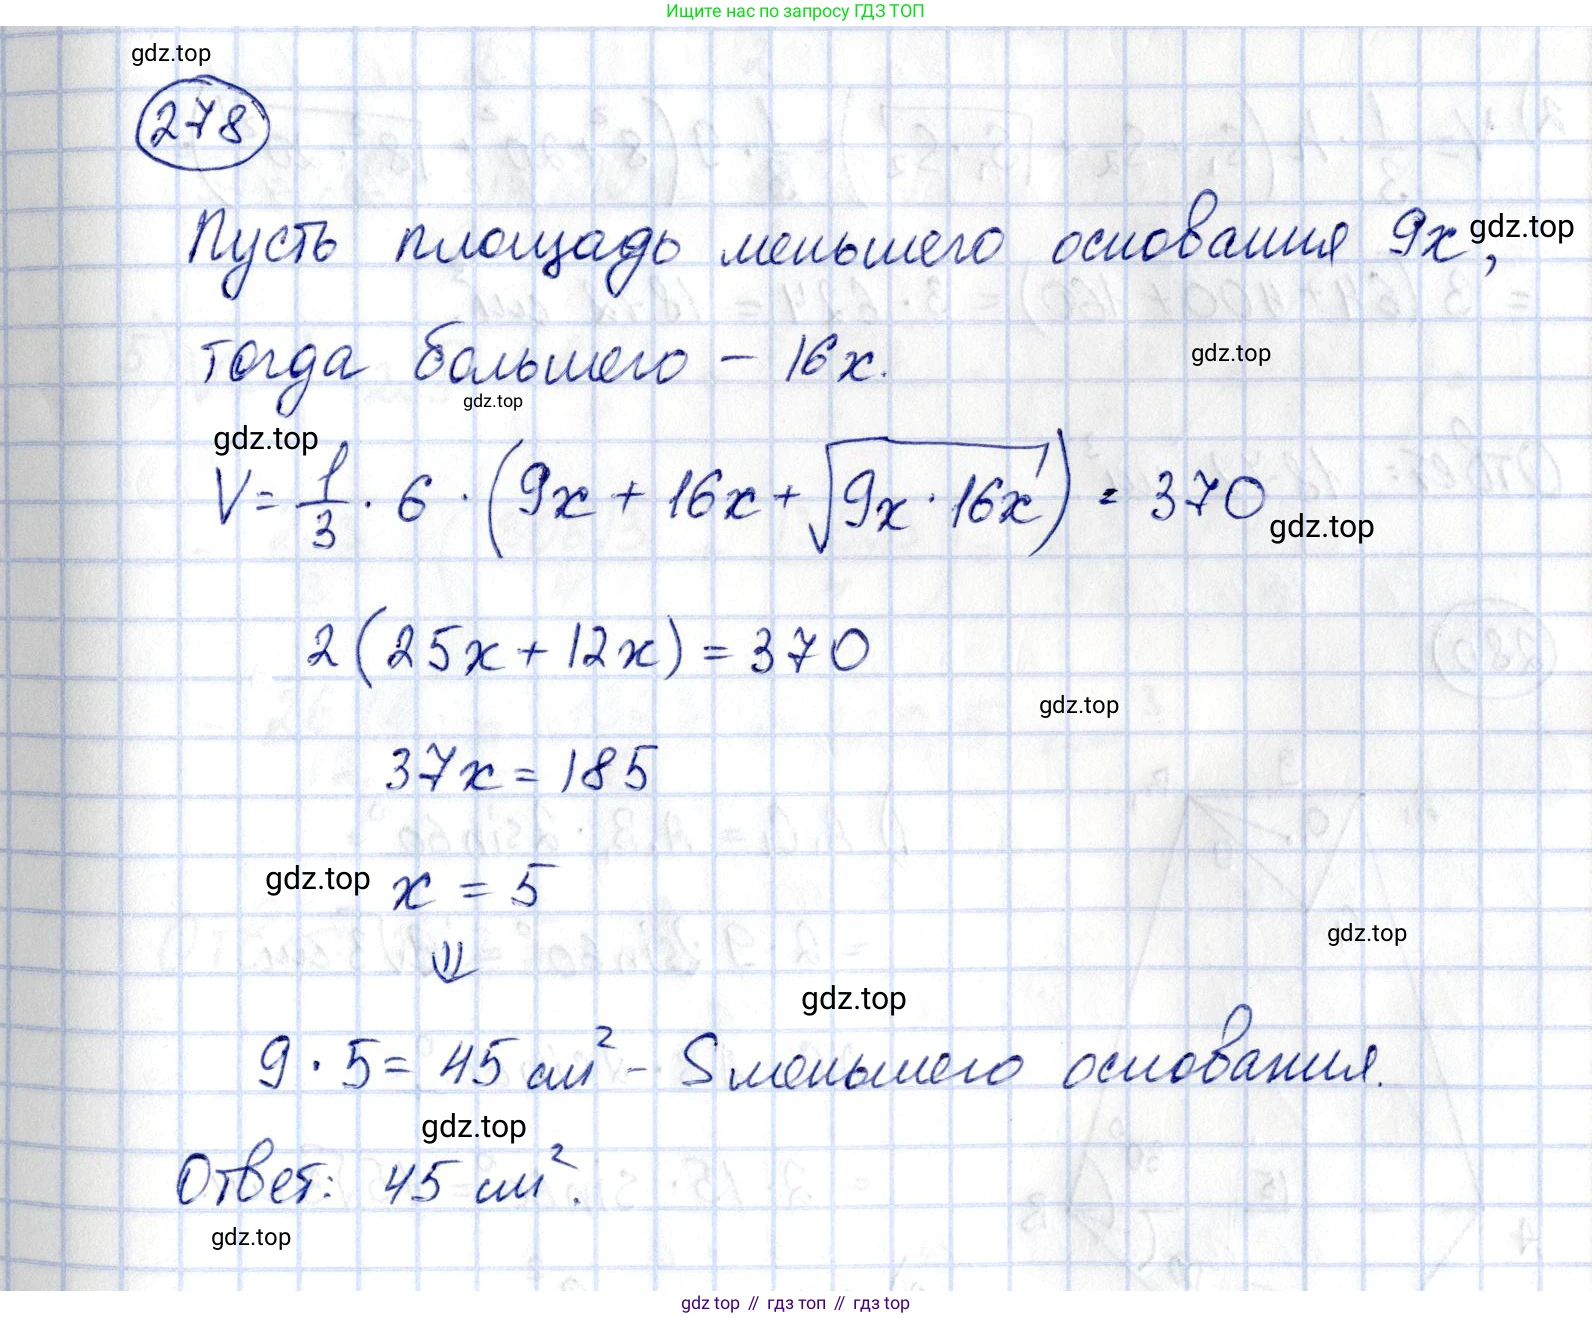 Ищите нас по запросу ГДЗ ТОП
gdz.top
278
Пусть площадь меньшего основания 9x,
gdz.top
тогда большего – 16x.
gdz.top
gdz.top
gdz.top
V = 1/3 · 6 · (9x + 16x + √(9x · 16x)) = 370
gdz.top
2(25x + 12x) = 370
gdz.top
37x = 185
gdz.top
x = 5
gdz.top
⇓
gdz.top
9 · 5 = 45 см² – S меньшего основания.
gdz.top
Ответ: 45 см².
gdz.top
gdz top // гдз топ // гдз top